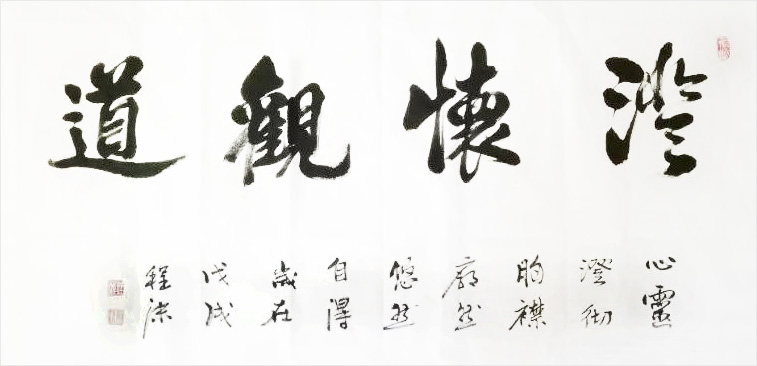 澄懷觀道
心靈
澄彻
胸襟
廓然
悠然
自得
歲在
戊戌
程